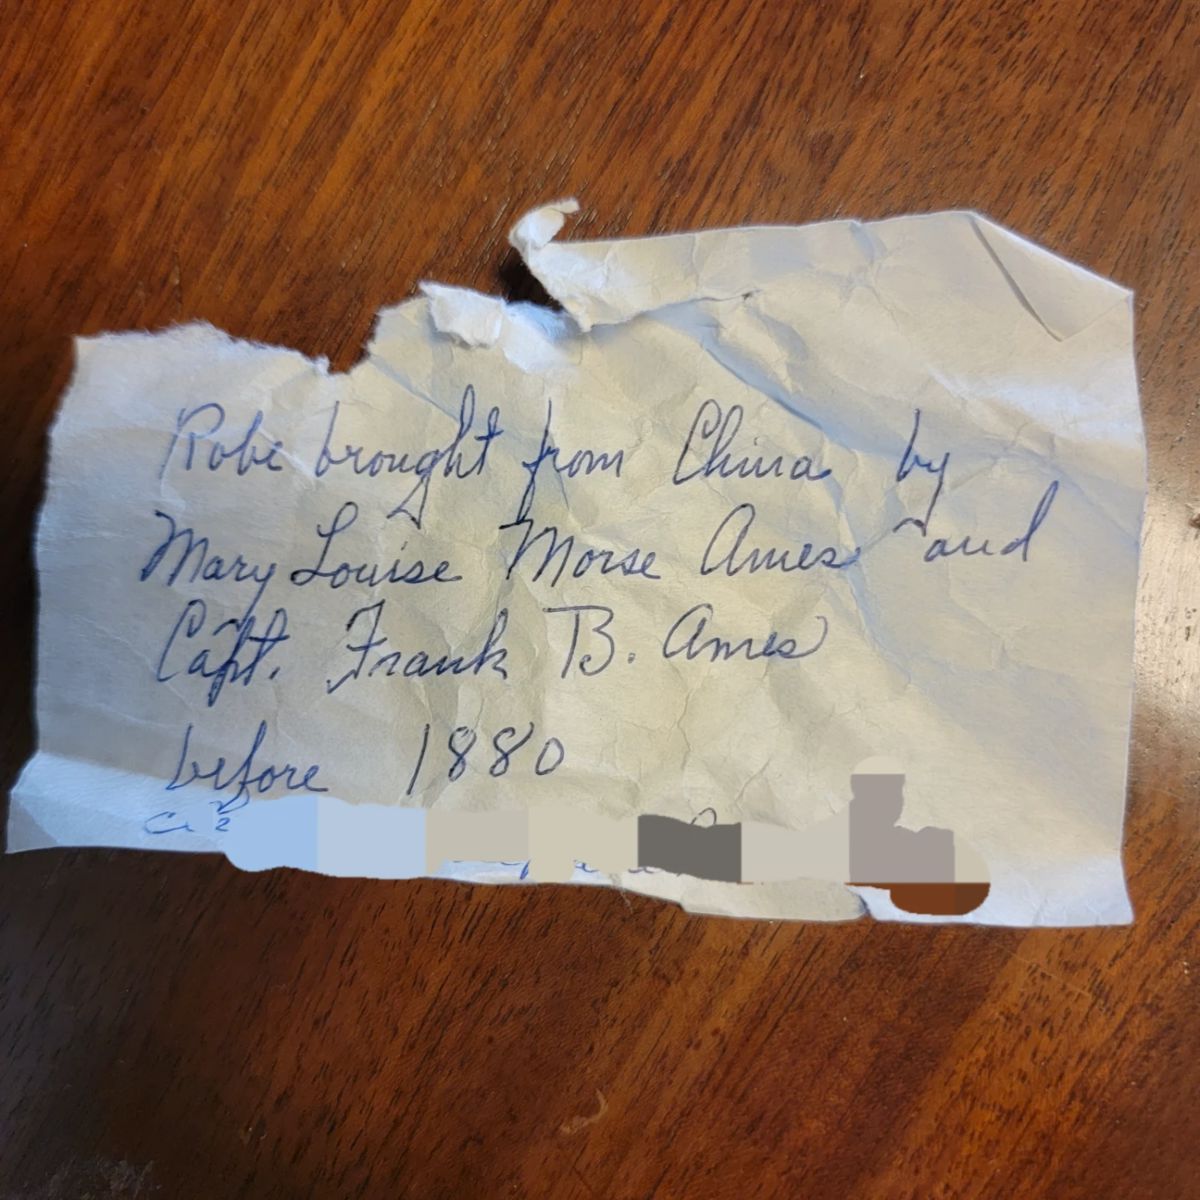 Robe brought from China by
Mary Louise Morse Ames and
Capt. Frank B. Ames
before 1880